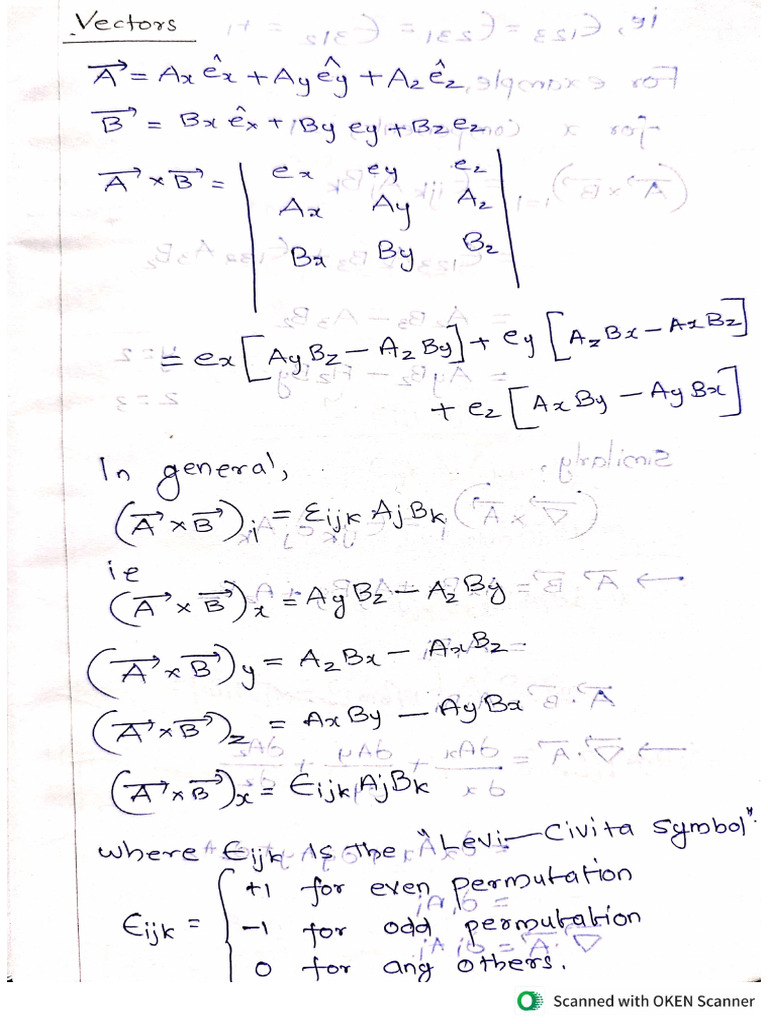 Vectors
A⃗ = Ax êx + Ay êy + Az êz
B⃗ = Bx êx + By ey + Bz ez
A⃗ × B⃗ = | ex ey ez
Ax Ay Az
Bx By Bz |
= ex [Ay Bz − Az By] + ey [Az Bx − Ax Bz]
+ ez [Ax By − Ay Bx]
In general,
(A⃗ × B⃗)i = εijk Aj Bk
ie
(A⃗ × B⃗)x = Ay Bz − Az By
(A⃗ × B⃗)y = Az Bx − Ax Bz
(A⃗ × B⃗)z = Ax By − Ay Bx
(A⃗ × B⃗)x = ϵijk Aj Bk
where ϵijk is the "Levi–Civita symbol"
ϵijk = { +1 for even permutation
−1 for odd permutation
0 for any others.
Scanned with OKEN Scanner